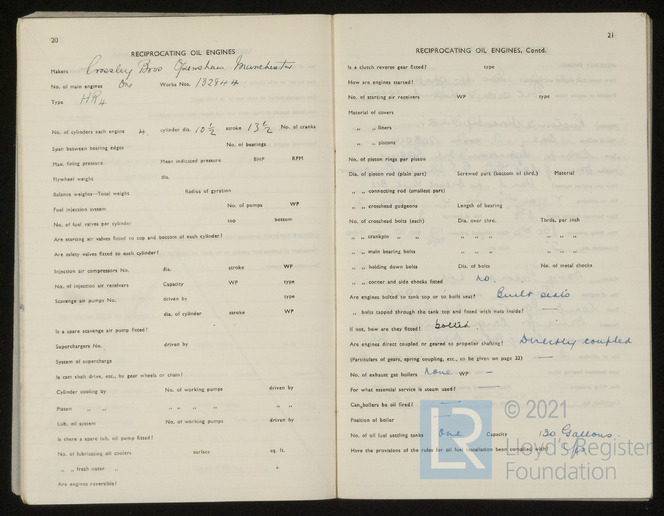 20
RECIPROCATING OIL ENGINES
Makers Crossley Bros Openshaw Manchester
No. of main engines One Works Nos. 132944
Type HR4
No. of cylinders each engine 4. cylinder dia. 10½ stroke 13½ No. of cranks
Span between bearing edges No. of bearings
Max. firing pressure Mean indicated pressure BHP RPM
Flywheel weight dia.
Balance weights—Total weight Radius of gyration
Fuel injection system No. of pumps WP
No. of fuel valves per cylinder top bottom
Are starting air valves fitted to top and bottom of each cylinder?
Are safety valves fitted to each cylinder?
Injection air compressors No. dia. stroke WP
No. of injection air receivers Capacity WP type
Scavenge air pumps No. driven by type
dia. of cylinder stroke WP
Is a spare scavenge air pump fitted?
Superchargers No. driven by
System of supercharge
Is cam shaft drive, etc., by gear wheels or chain?
Cylinder cooling by No. of working pumps driven by
Piston „ „ „ „ „ „ „ „
Lub. oil system No. of working pumps driven by
Is there a spare lub. oil pump fitted?
No. of lubricating oil coolers surface sq. ft.
„ „ fresh water „
Are engines reversible?
21
RECIPROCATING OIL ENGINES, Contd.
Is a clutch reverse gear fitted? type
How are engines started?
No. of starting air receivers WP type
Material of covers
„ „ liners
„ „ pistons
No. of piston rings per piston
Dia. of piston rod (plain part) Screwed part (bottom of thrd.) Material
„ „ connecting rod (smallest part)
„ „ crosshead gudgeons Length of bearing
No. of crosshead bolts (each) Dia. over thrd. Thrds. per inch
„ „ crankpin „ „ „ „ „ „ „ „
„ „ main bearing bolts „ „ „ „ „ „
„ „ holding down bolts Dia. of bolts No. of metal chocks
„ „ corner and side chocks fitted no.
Are engines bolted to tank top or to built seat? Built seats
„ bolts tapped through the tank top and fitted with nuts inside? —
If not, how are they fitted? bolted.
Are engines direct coupled or geared to propeller shafting? Directly coupled
(Particulars of gears, spring coupling, etc., to be given on page 22) —
No. of exhaust gas boilers None WP —
For what essential service is steam used? —
Can boilers be oil fired? —
Position of boiler
No. of oil fuel settling tanks One Capacity 130 Gallons.
Have the provisions of the rules for oil fuel installation been complied with? Yes
© 2021
LR
Lloyd's Register
Foundation